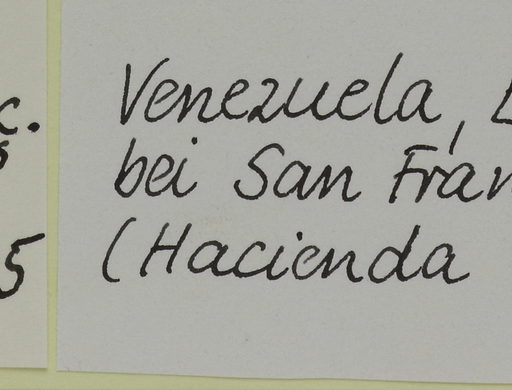 c.
5
Venezuela,
bei San Fran
(Hacienda